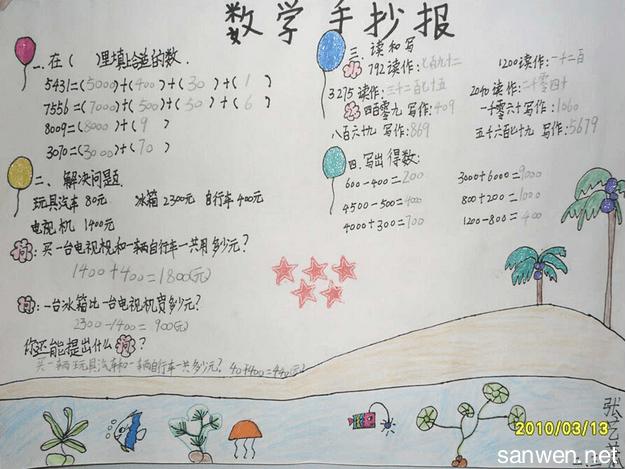 数学手抄报
一.在（ ）里填上合适的数.
5431=(5000)+(400)+(30)+(1)
7556=(7000)+(500)+(50)+(6)
8009=(8000)+(9)
3070=(3000)+(70)
二、解决问题.
玩具汽车 80元 冰箱 2300元 自行车 400元
电视机 1400元
问:买一台电视视和一辆自行车一共用多少元?
1400+400=1800(元)
问:一台冰箱比一台电视机贵多少元?
2300-1400=900(元)
你还能提出什么问?
买一辆玩具汽车和一辆自行车一共多少元? 40+400=440(元)
三、读和写
792读作:七百九十二 1200读作:一千二百
3275读作:三千二百七十五 2040读作:二千零四十
四百零九 写作:409 一千零六十 写作:1060
八百六十九 写作:869 五千六百七十九 写作:5679
四.写出得数:
600-400=200 3000+6000=9000
4500-500=4000 800+200=1000
4000+300=700 1200-800=400
2010/03/13
sanwen.net